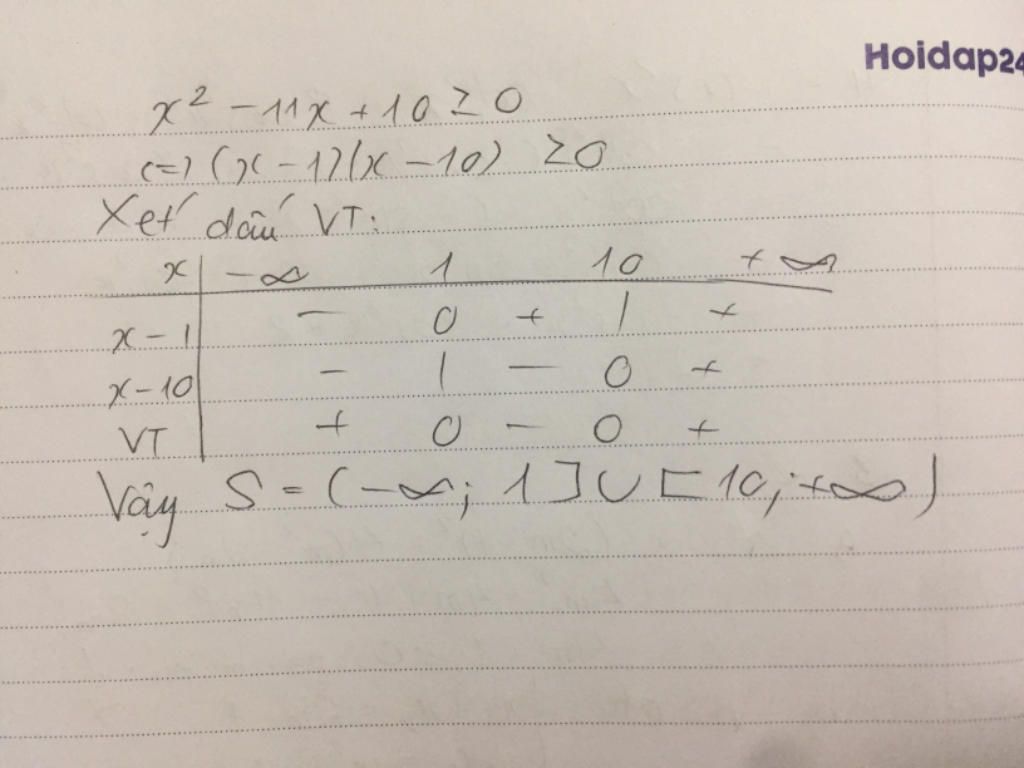 Hoidap24
x² - 11x + 10 ≥ 0
<=> (x - 1)(x - 10) ≥ 0
Xét dấu VT:
x | -∞ 1 10 +∞
x - 1 | - 0 + | +
x - 10 | - | - 0 +
VT | + 0 - 0 +
Vậy S = (-∞; 1] ∪ [10; +∞)